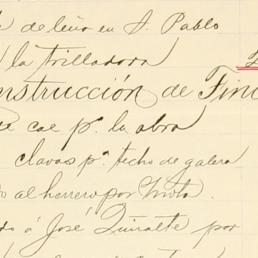 de leña en S. Pablo
la trilladora
nstrucción de Fin
cal pª. la obra
clavos pª techo de galera
al herrero por
á José Iriarte por